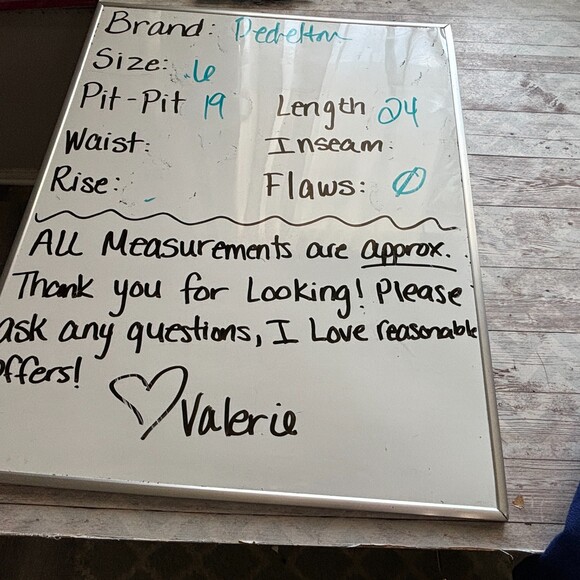 Brand:
Size: 6
Pit-Pit 19 Length 24
Waist: Inseam:
Rise: Flaws: Ø
ALL Measurements are approx.
Thank you for Looking! Please
ask any questions, I Love reasonable
offers!
♡Valerie